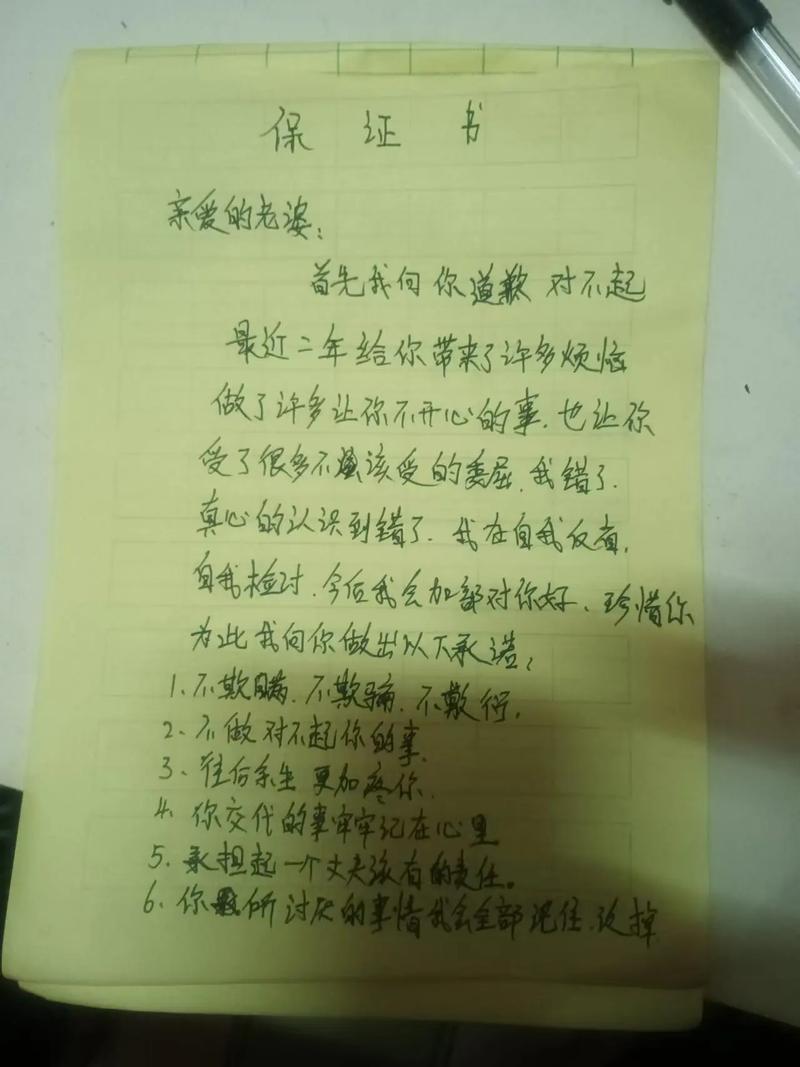 保 证 书
亲爱的老婆:
首先我向你道歉 对不起
最近二年给你带来了许多烦恼
做了许多让你不开心的事、也让你
受了很多不该受的委屈、我错了.
真心的认识到错了、我在自我反省,
自我检讨、今后我会加部对你好、珍惜你
为此我向你做出以下承诺:
1、不欺瞒、不欺骗、不敷衍,
2、不做对不起你的事.
3、往后余生 更加疼你.
4、你交代的事牢牢记在心里
5、承担起一个丈夫该有的责任。
6、你所讨厌的事情我会全部记住、改掉